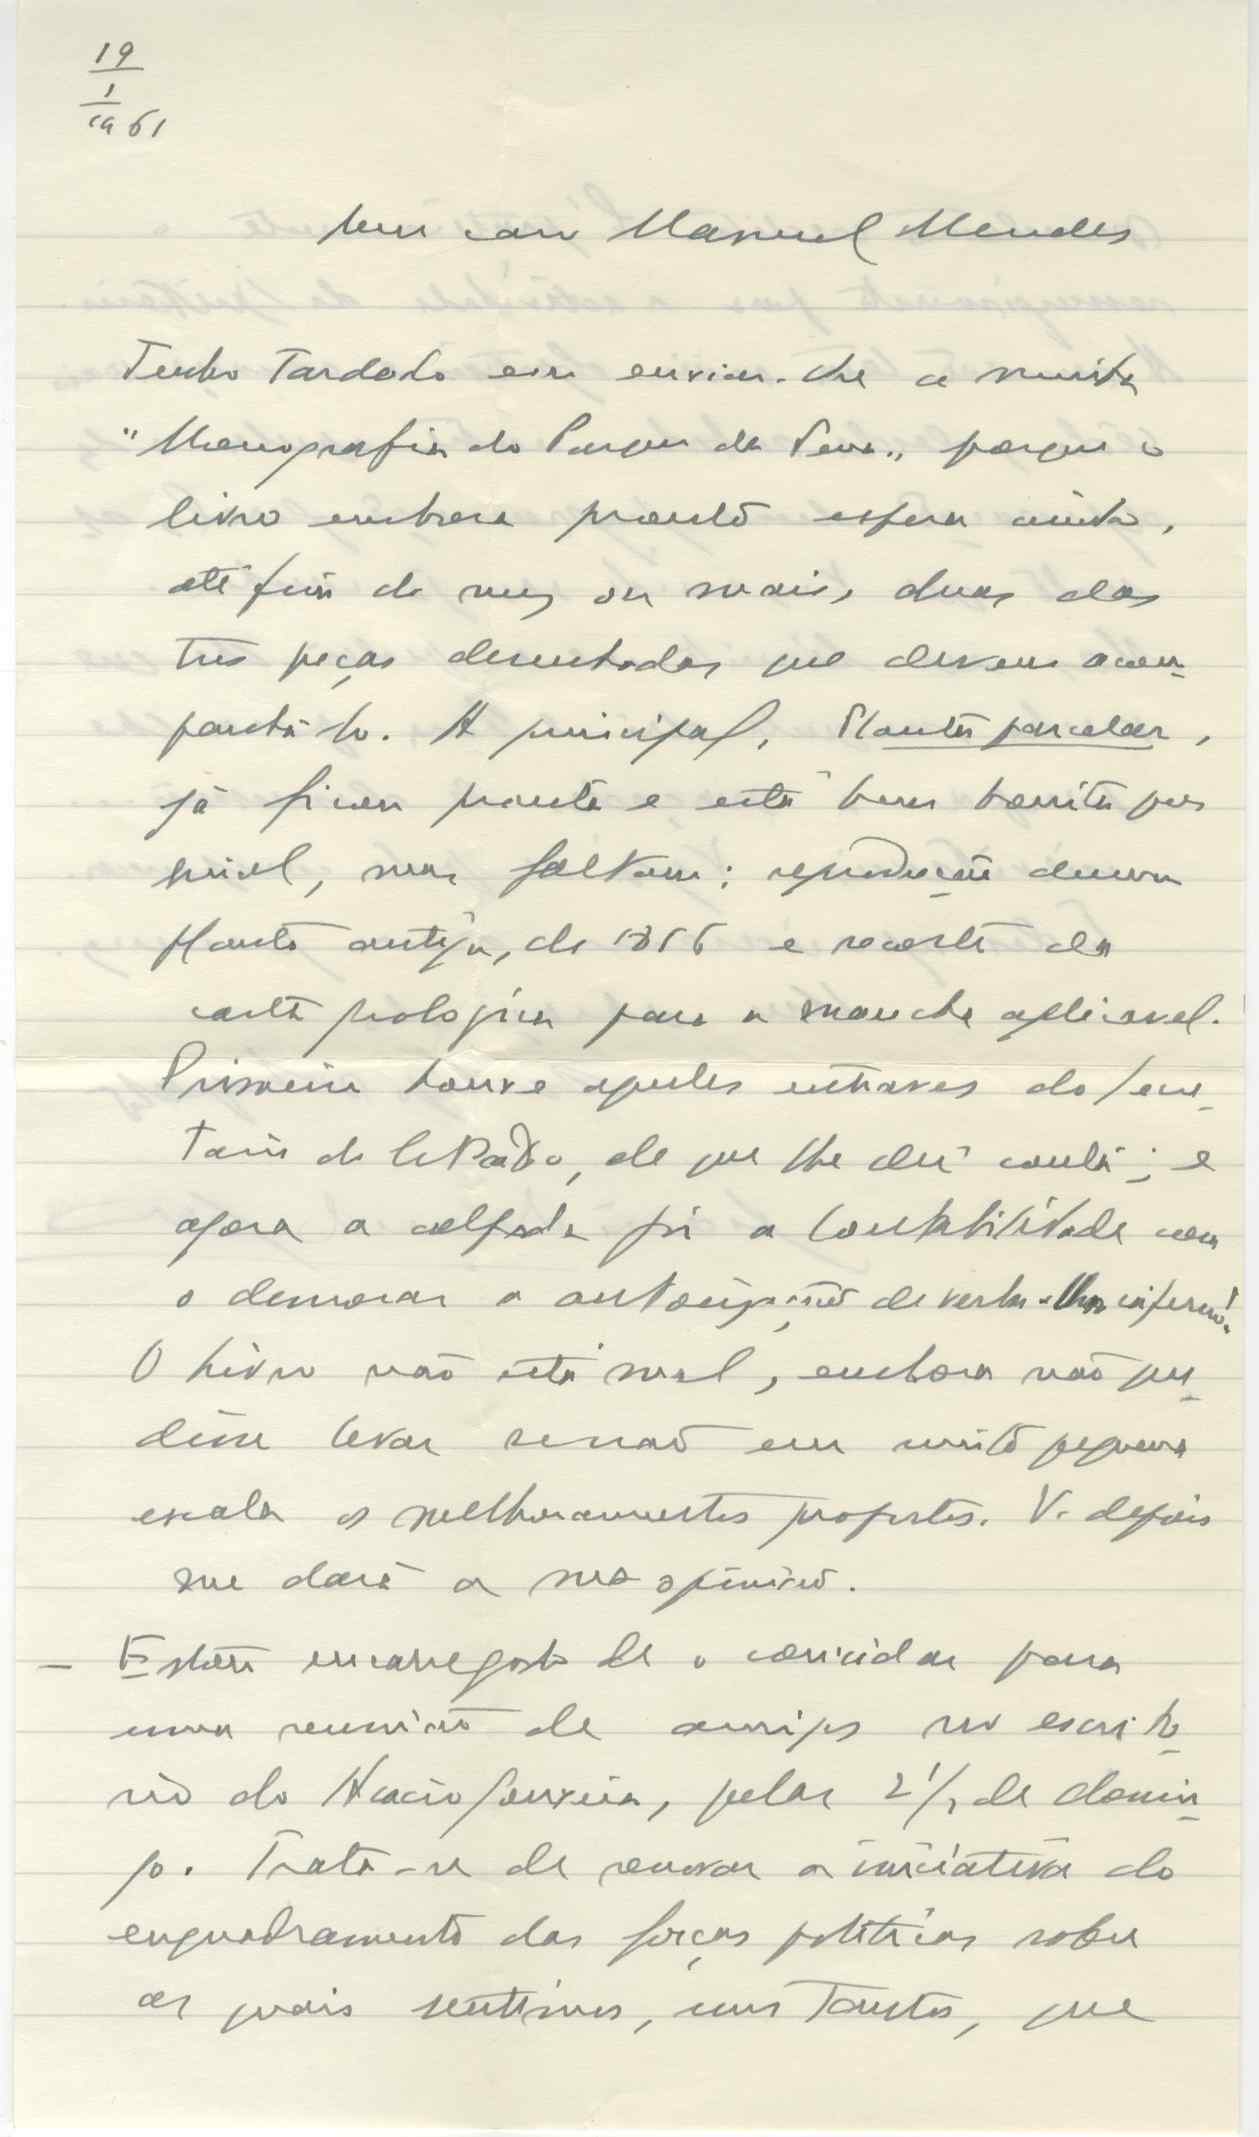 19
1
1961
Meu caro Manuel Mendes
Tenho tardado em enviar-lhe a minha
"Monografia do Parque da Pena" porque o
livro embora pronto espera ainda,
até fim do mez ou mais, duas das
tres peças desenhadas que devem acom-
panhá-lo. A principal, Planta parcelar,
já ficou pronta e está bem bonita por
sinal, mas faltam: reprodução duma
planta antiga, de 1856 e recorte da
carta geologica para a mancha aplicavel.
Primeiro houve aqueles entraves do Secre-
tario de Estado, de que lhe dei conta; e
agora a culpada foi a Contabilidade com
o demorar a autorização de verba
O livro não está mal, embora não pu-
desse levar senão em muito pequena
escala os melhoramentos propostos. V. depois
me dará a sua opinião.
- Estou encarregado de o convidar para
uma reunião de amigos no escrito-
rio do Acacio Gouveia, pelas 2 1/2 de domin-
go. Trata-se de renovar a iniciativa do
enquadramento das forças politicas sobre
as quais sentimos, uns tantos, que